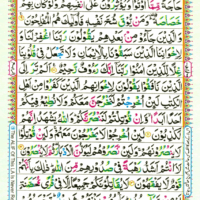 حَاجَةً مِّمَّآ اُوْتُوْا وَيُؤْثِرُوْنَ عَلٰٓى اَنْفُسِهِمْ وَلَوْ كَانَ بِهِمْ
خَصَاصَةٌ وَمَنْ يُّوْقَ شُحَّ نَفْسِهٖ فَاُولٰٓئِكَ هُمُ الْمُفْلِحُوْنَ
وَالَّذِيْنَ جَآءُوْ مِنْۢ بَعْدِهِمْ يَقُوْلُوْنَ رَبَّنَا اغْفِرْ لَنَا
وَلِاِخْوَانِنَا الَّذِيْنَ سَبَقُوْنَا بِالْاِيْمَانِ وَلَا تَجْعَلْ فِيْ قُلُوْبِنَا
غِلًّا لِّلَّذِيْنَ اٰمَنُوْا رَبَّنَآ اِنَّكَ رَءُوْفٌ رَّحِيْمٌ اَلَمْ تَرَ اِلَى
الَّذِيْنَ نَافَقُوْا يَقُوْلُوْنَ لِاِخْوَانِهِمُ الَّذِيْنَ كَفَرُوْا مِنْ
اَهْلِ الْكِتٰبِ لَئِنْ اُخْرِجْتُمْ لَنَخْرُجَنَّ مَعَكُمْ وَلَا نُطِيْعُ
فِيْكُمْ اَحَدًا اَبَدًا وَّاِنْ قُوْتِلْتُمْ لَنَنْصُرَنَّكُمْ وَاللّٰهُ يَشْهَدُ اِنَّهُمْ
لَكٰذِبُوْنَ لَئِنْ اُخْرِجُوْا لَا يَخْرُجُوْنَ مَعَهُمْ وَلَئِنْ قُوْتِلُوْا
لَا يَنْصُرُوْنَهُمْ وَلَئِنْ نَّصَرُوْهُمْ لَيُوَلُّنَّ الْاَدْبَارَ ثُمَّ لَا يُنْصَرُوْنَ
لَاَنْتُمْ اَشَدُّ رَهْبَةً فِيْ صُدُوْرِهِمْ مِّنَ اللّٰهِ ذٰلِكَ بِاَنَّهُمْ قَوْمٌ
لَّا يَفْقَهُوْنَ لَا يُقَاتِلُوْنَكُمْ جَمِيْعًا اِلَّا فِيْ قُرًى مُّحَصَّنَةٍ